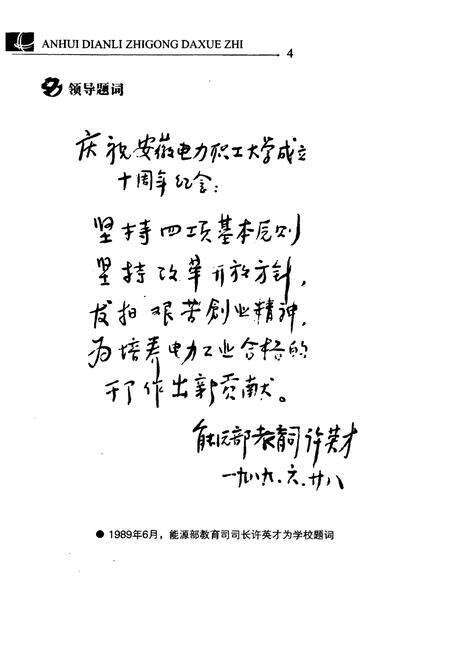 ANHUI DIANLI ZHIGONG DAXUE ZHI
4
领导题词
庆祝安徽电力职工大学成立
十周年纪念：
坚持四项基本原则
坚持改革开放方针，
发扬艰苦创业精神，
为培养电力工业合格的
干了作出新贡献。
能源部教育司许英才
一九八九.六.廿八
● 1989年6月，能源部教育司司长许英才为学校题词